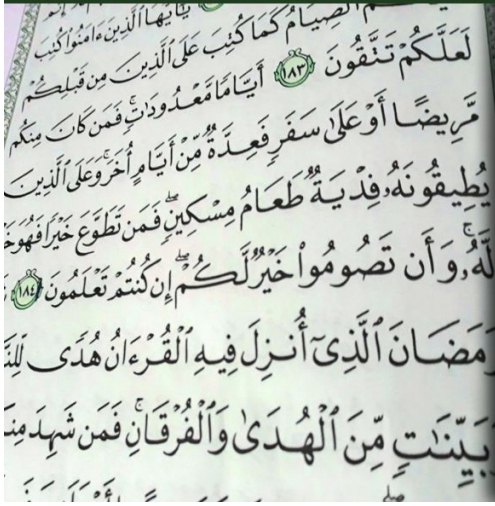 يَٰٓأَيُّهَا ٱلَّذِينَ ءَامَنُوا۟ كُتِبَ
ٱلصِّيَامُ كَمَا كُتِبَ عَلَى ٱلَّذِينَ مِن قَبْلِكُمْ
لَعَلَّكُمْ تَتَّقُونَ ١٨٣ أَيَّامًا مَّعْدُودَٰتٍ ۚ فَمَن كَانَ مِنكُم
مَّرِيضًا أَوْ عَلَىٰ سَفَرٍ فَعِدَّةٌ مِّنْ أَيَّامٍ أُخَرَ ۚ وَعَلَى ٱلَّذِينَ
يُطِيقُونَهُۥ فِدْيَةٌ طَعَامُ مِسْكِينٍ ۖ فَمَن تَطَوَّعَ خَيْرًا فَهُوَ
لَّهُۥ ۚ وَأَن تَصُومُوا۟ خَيْرٌ لَّكُمْ ۖ إِن كُنتُمْ تَعْلَمُونَ ١٨٤
رَمَضَانَ ٱلَّذِىٓ أُنزِلَ فِيهِ ٱلْقُرْءَانُ هُدًى
بَيِّنَٰتٍ مِّنَ ٱلْهُدَىٰ وَٱلْفُرْقَانِ ۚ فَمَن شَهِدَ